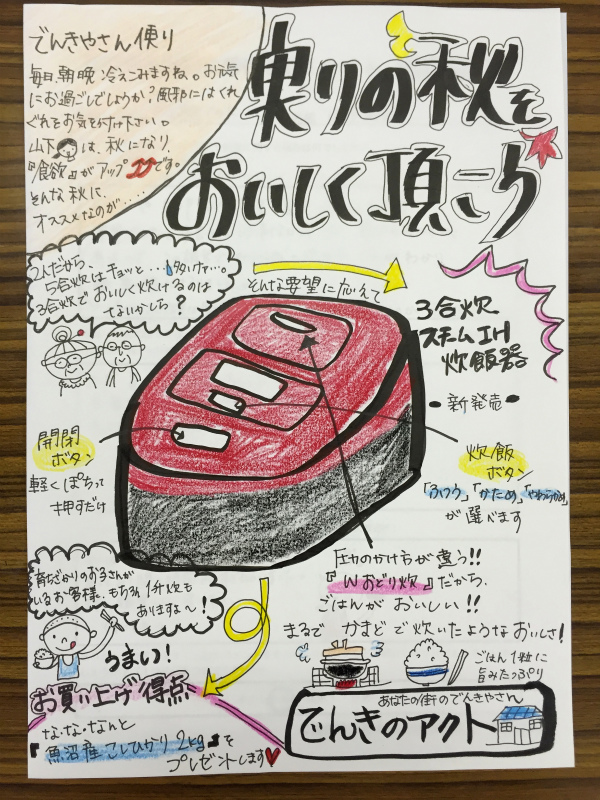 でんきやさん便り
毎日、朝晩 冷えこみますね。お元気
にお過ごしでしょうか?風邪にはくれ
ぐれもお気を付け下さい。
山下は、秋になり、
『食欲』がアップです。
そんな秋に、
オススメなのが....
実りの秋を
おいしく頂こう
2人だから、
5合炊はチョット...多いワァ...。
3合炊でおいしく炊けるのは
ないかしら?
そんな要望に応えて
3合炊
スチームIH
炊飯器
新発売
開閉
ボタン
軽くぽちって
押すだけ
炊飯
ボタン
「ふつう」「かため」「やわらかめ」
が選べます
圧力のかけ方が違う!!
『Wおどり炊』だから、
ごはんがおいしい!!
まるで かまどで炊いたようなおいしさ!
ごはん1粒に
旨みたっぷり
育ちざかりのお子さんが
いるお客様、もちろん 1升炊も
ありますよ〜!
うまい!
お買い上げ得点
な・な・なんと
『魚沼産こしひかり2kg』を
プレゼントします♥
あなたの街のでんきやさん
でんきのアクト